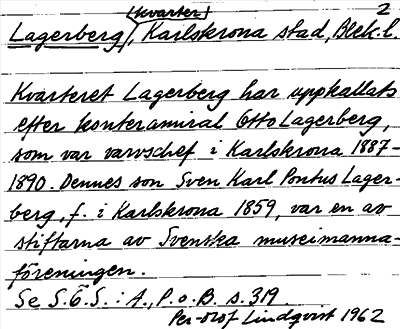 (kvarter) 2
Lagerberg, Karlskrona stad, Blek.l.
Kvarteret Lagerberg har uppkallats
efter konteramiral Otto Lagerberg,
som var varvschef i Karlskrona 1887-
1890. Dennes son Sven Karl Pontus Lager-
berg, f. i Karlskrona 1859, var en av
stiftarna av Svenska museimanna-
föreningen.
Se S.O.S.: A., P. o. B. s. 319.
Per-Olof Lindqvist 1962